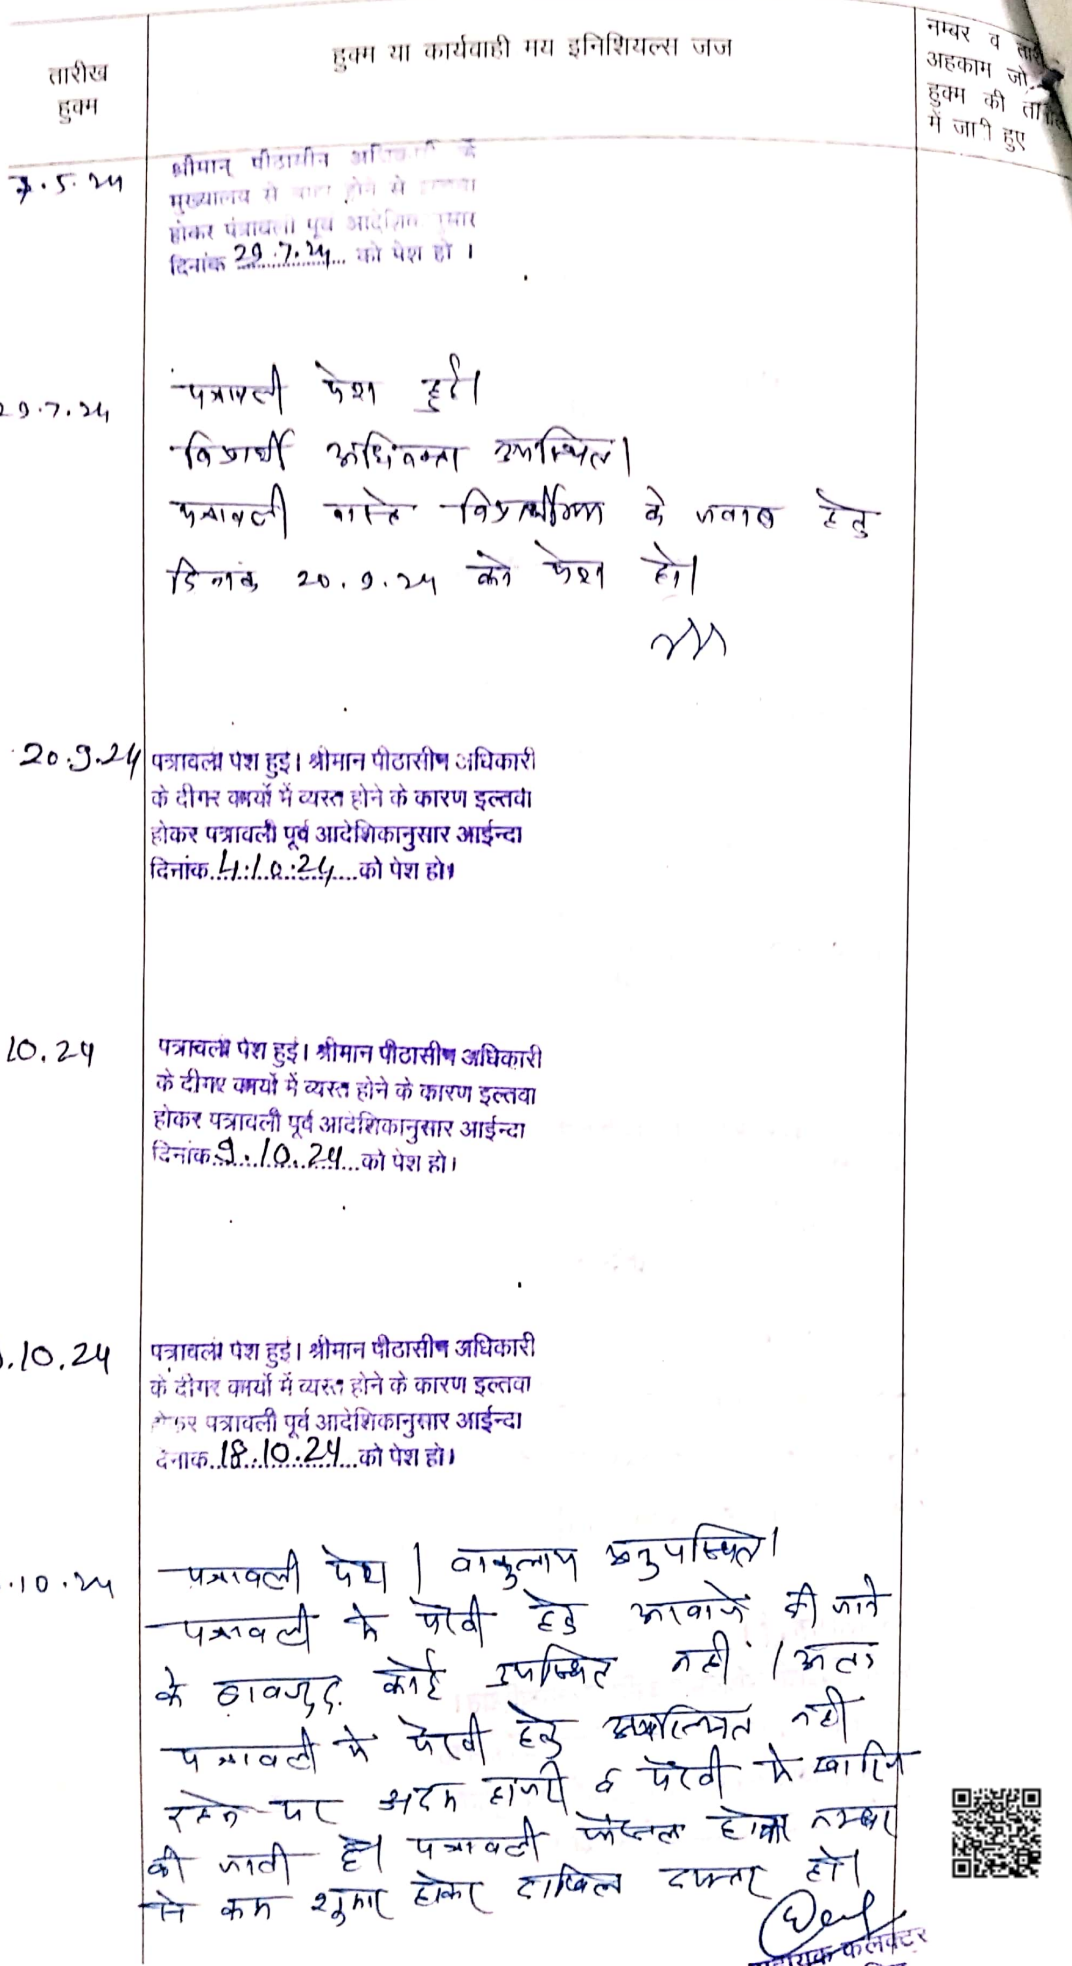 तारीख
हुक्म
हुक्म या कार्यवाही मय इनिशियल्स जज
नम्बर व
अहकाम जो
हुक्म की
में जारी हुए
7.5.24
श्रीमान् पीठासीन
मुख्यालय से होने से
होकर पत्रावली पूर्व
दिनांक 29.7.24 को पेश हो ।
29.7.24
पत्रावली पेश हुई।
विप्रार्थी अधिवक्ता उपस्थित।
पत्रावली वास्ते के जवाब हेतु
दिनांक 20.9.24 को पेश हो।
20.9.24
पत्रावली पेश हुई। श्रीमान पीठासीन अधिकारी
के दीगर कार्यो में व्यस्त होने के कारण इल्तवा
होकर पत्रावली पूर्व आदेशिकानुसार आईन्दा
दिनांक 4.10.24 को पेश हो।
10.24
पत्रावली पेश हुई। श्रीमान पीठासीन अधिकारी
के दीगर कार्यो में व्यस्त होने के कारण इल्तवा
होकर पत्रावली पूर्व आदेशिकानुसार आईन्दा
दिनांक 9.10.24 को पेश हो।
.10.24
पत्रावली पेश हुई। श्रीमान पीठासीन अधिकारी
के दीगर कार्यो में व्यस्त होने के कारण इल्तवा
पत्रावली पूर्व आदेशिकानुसार आईन्दा
18.10.24 को पेश हो।
.10.24
पत्रावली पेश। अनुपस्थित।
पत्रावली में पैरवी हेतु आवाजे दी जाने
के बावजुद कोई उपस्थित नही। अतः
पत्रावली में पैरवी हेतु उपस्थित नही
रहने पर अदम हाजरी व पैरवी में खारिज
की जाती है। पत्रावली फैसला होकर नम्बर
से कम शुमार होकर दाखिल दफ्तर हो।
कलक्टर